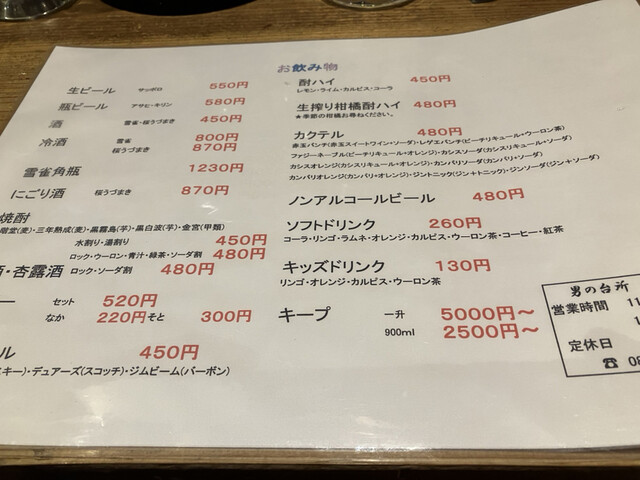 お飲み物
生ビール サッポロ 550円
瓶ビール アサヒ・キリン 580円
酒 雪雀・桜うづまき 450円
冷酒 雪雀 800円
桜うづまき 870円
雪雀角瓶 1230円
にごり酒 桜うづまき 870円
焼酎
階堂(麦)・三年熟成(麦)・黒霧島(芋)・黒白波(芋)・金宮(甲類)
水割り・湯割り 450円
ロック・ウーロン・青汁・緑茶・ソーダ割 480円
・杏露酒 ロック・ソーダ割 480円
ー セット 520円
なか 220円 そと 300円
ル 450円
スキー)・デュアーズ(スコッチ)・ジムビーム(バーボン)
酎ハイ 450円
レモン・ライム・カルピス・コーラ
生搾り柑橘酎ハイ 480円
★季節の柑橘お尋ねください。
カクテル 480円
赤玉パンチ(赤玉スイートワイン・ソーダ)・レゲエパンチ(ピーチリキュール・ウーロン茶)
ファジーネーブル(ピーチリキュール・オレンジ)・カシスソーダ(カシスリキュール・ソーダ)
カシスオレンジ(カシスリキュール・オレンジ)・カンパリソーダ(カンパリ・ソーダ)
カンパリオレンジ(カンパリ・オレンジ)・ジントニック(ジン+トニック)・ジンソーダ(ジン+ソーダ)
ノンアルコールビール 480円
ソフトドリンク 260円
コーラ・リンゴ・ラムネ・オレンジ・カルピス・ウーロン茶・コーヒー・紅茶
キッズドリンク 130円
リンゴ・オレンジ・カルピス・ウーロン茶
キープ 一升 5000円〜
900ml 2500円〜
男の台所
営業時間 11
1
定休日
☎ 08